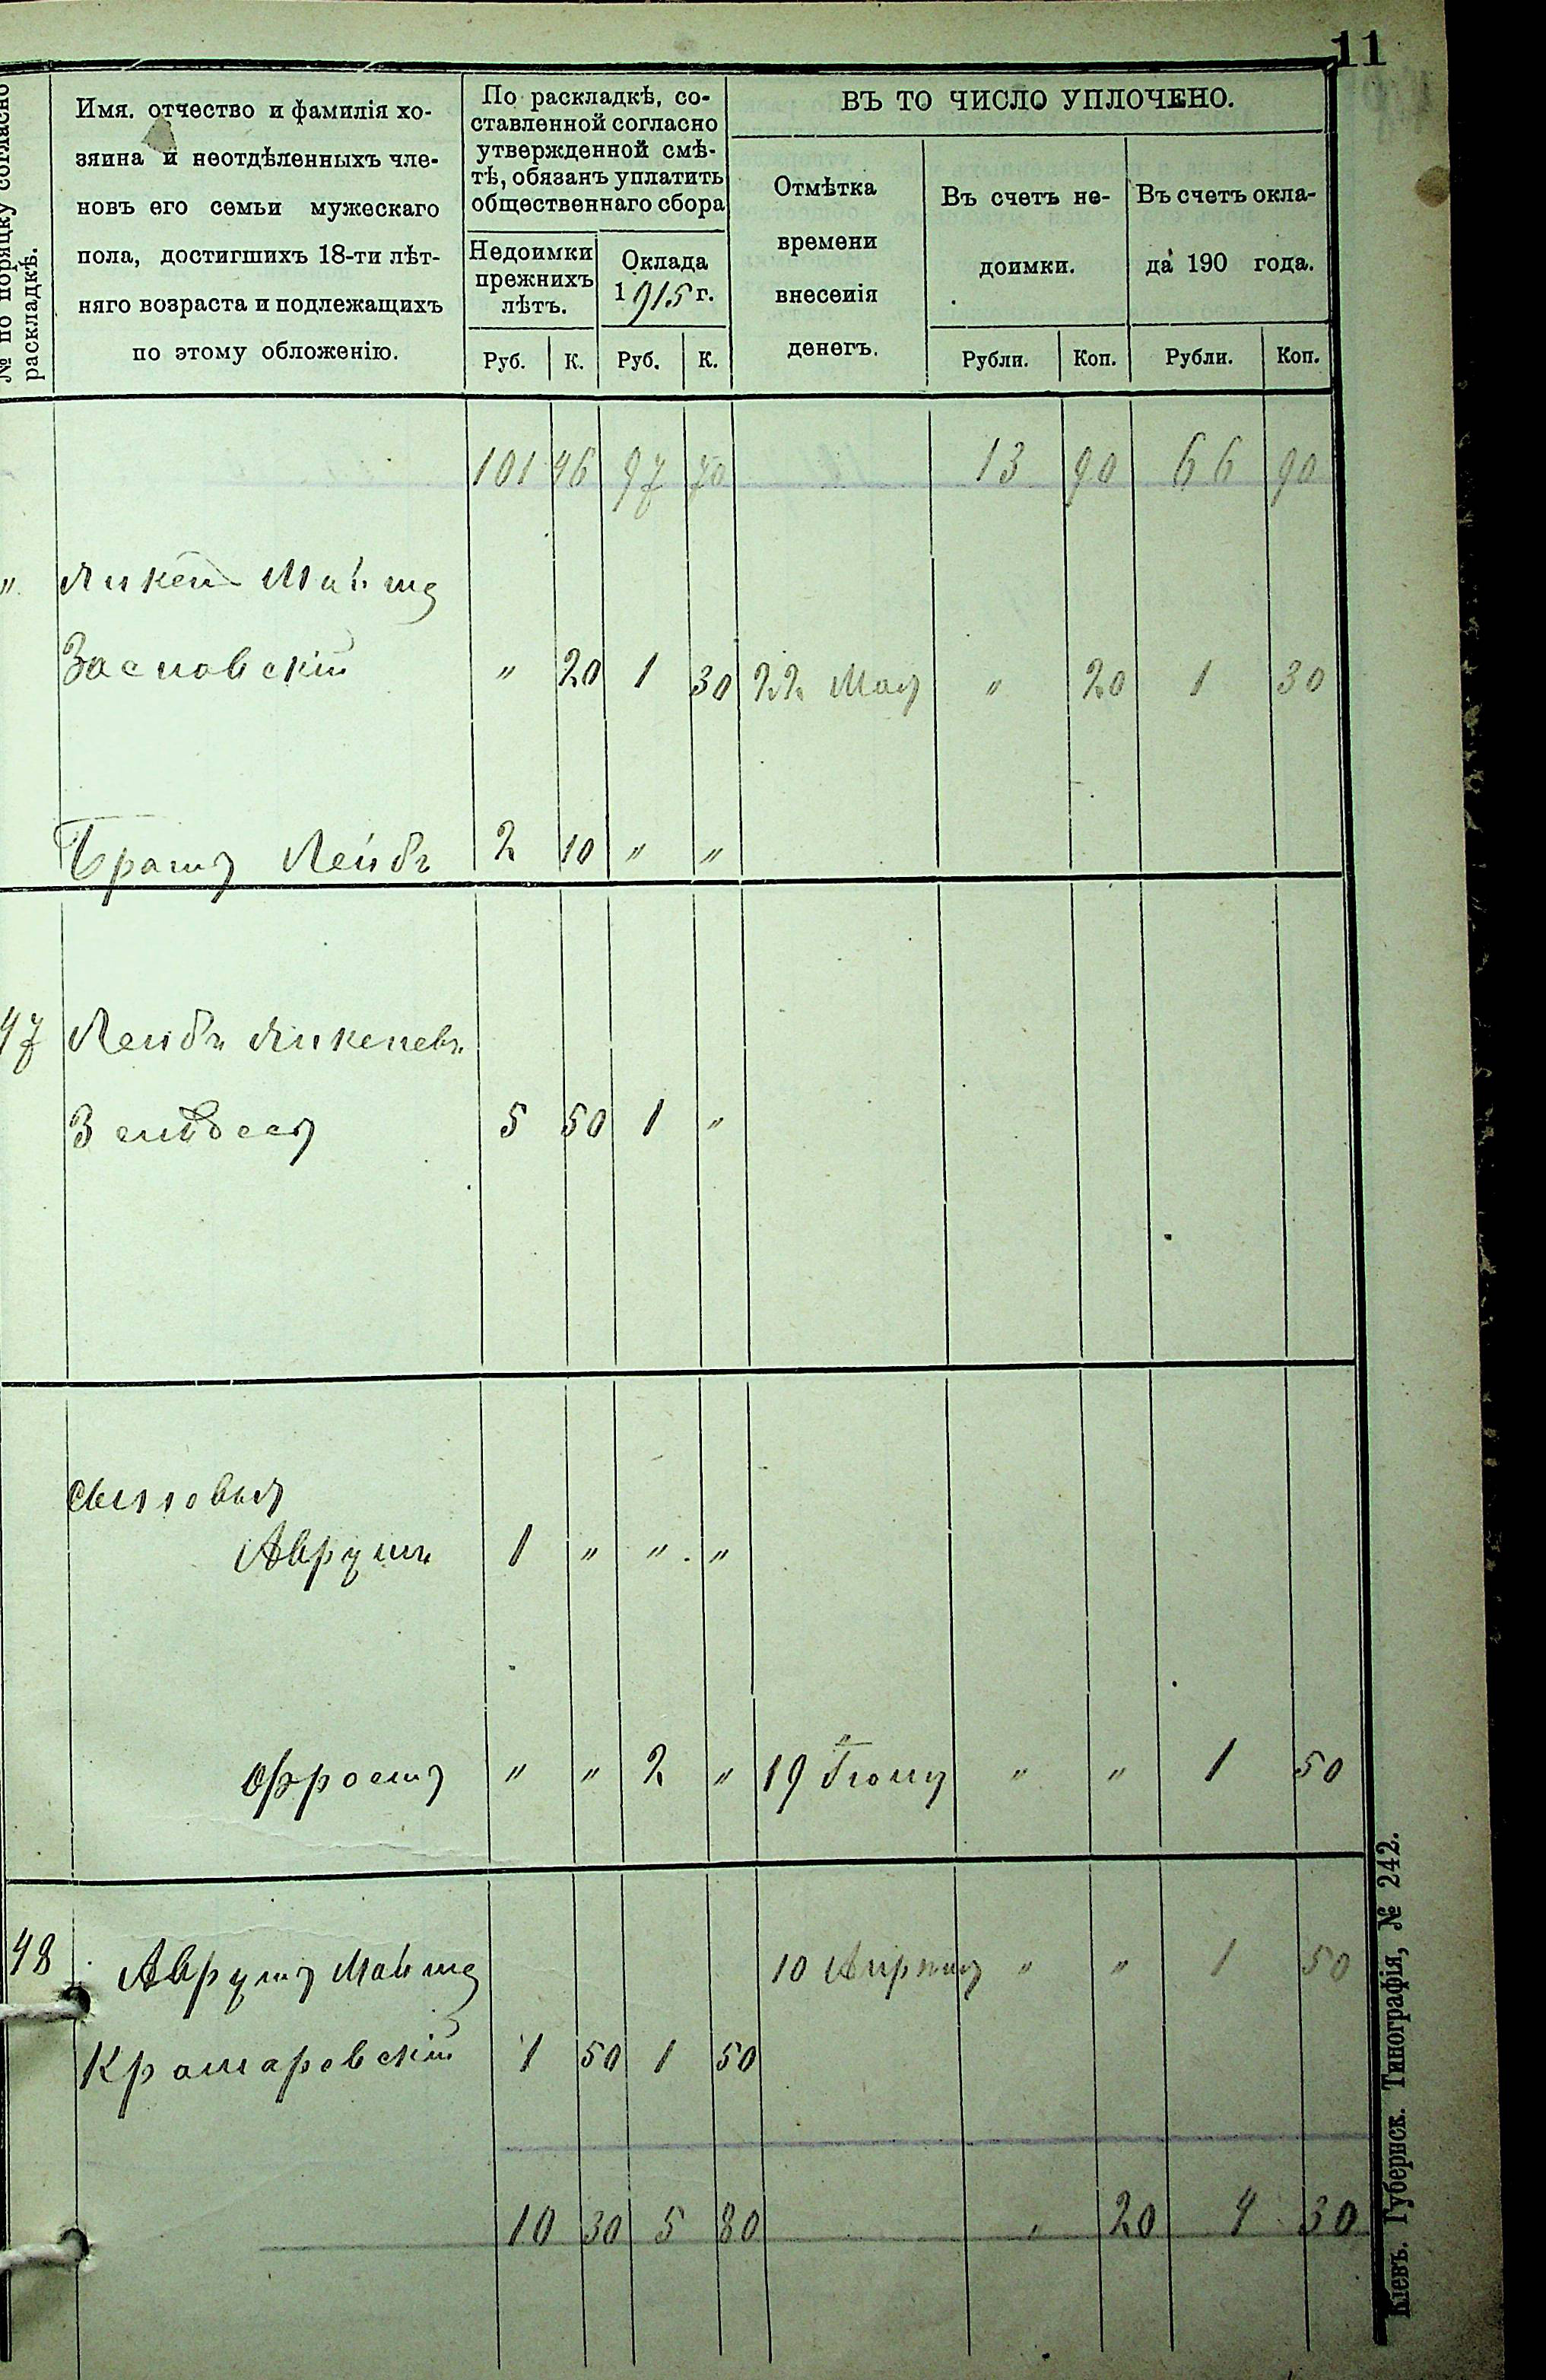 11
№ по порядку согласно раскладкѣ.
Имя, отчество и фамилія хо-
зяина и неотдѣленныхъ чле-
новъ его семьи мужескаго
пола, достигшихъ 18-ти лѣт-
няго возраста и подлежащихъ
по этому обложенію.
По раскладкѣ, со-
ставленной согласно
утвержденной смѣ-
тѣ, обязанъ уплатить
общественнаго сбора
Недоимки
прежнихъ
лѣтъ.
Оклада
1915 г.
Руб. К. Руб. К.
ВЪ ТО ЧИСЛО УПЛОЧЕНО.
Отмѣтка
времени
внесенія
денегъ.
Въ счетъ не-
доимки.
Рубли. Коп.
Въ счетъ окла-
да 190 года.
Рубли. Коп.
101 46 97 70 13 90 66 90
" Янкель
Заславскій " 20 1 30 22 Мая " 20 1 30
Братъ Лейбъ 2 10 " "
47 Лейбъ Янкелевъ
5 50 1 "
Сыновья
Аврумъ 1 " " "
" " 2 " 19 Іюня " " 1 50
48 Аврумъ 10 Апрѣля " " 1 50
Крамаровскій 1 50 1 50
10 30 5 80 " 20 4 30
Кіевъ. Губернск. Типографія, № 242.